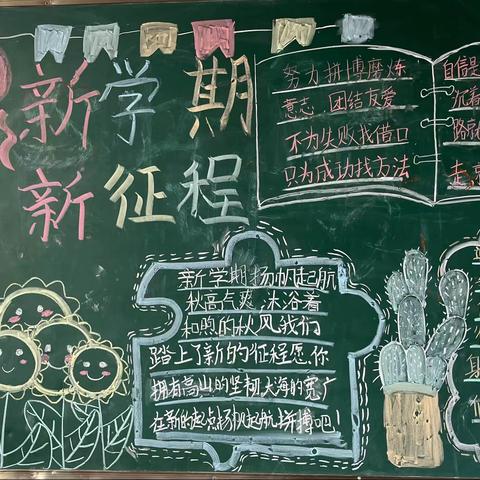 新学期
新征程
努力拼搏磨炼
意志 团结友爱
不为失败找借口
只为成功找方法
自信是
沉着
路就
走,
新学期扬帆起航
秋高气爽,沐浴着
和煦的秋风我们
踏上了新的征程愿你
拥有高山的坚韧大海的宽广
在新的起点扬帆起航,拼搏吧!